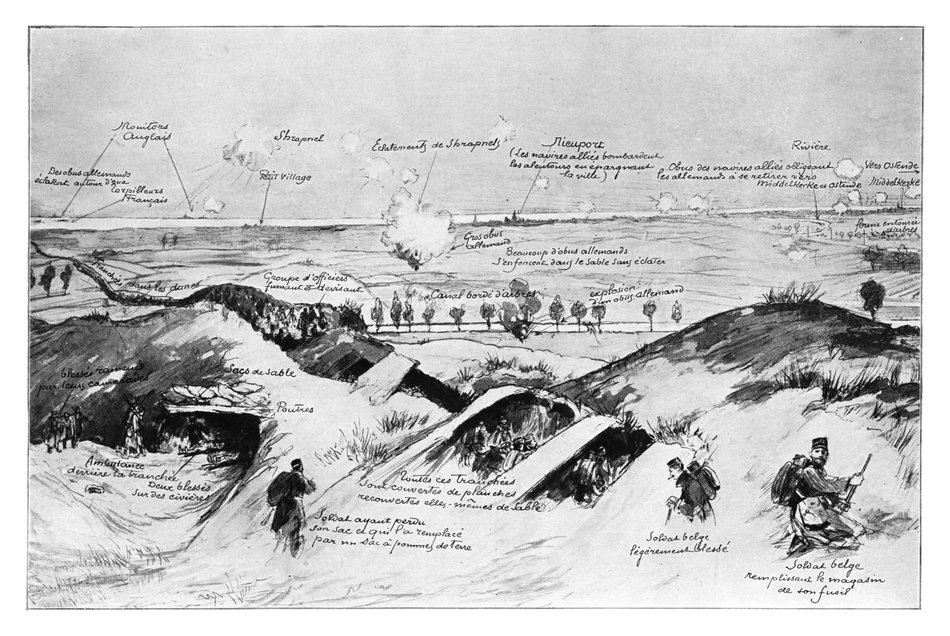 Monitors
Anglais
Shrapnel
Petit Village
Des obus allemands
éclatent autour d'eux
Torpilleurs
Français
Éclatements de Shrapnels
Nieuport
(Les navires alliés bombardent
les alentours en épargnant
la ville)
Rivière
Obus des navires alliés obligeant
les allemands à se retirer vers
Middelkerke et Ostende
Vers Ostende
Middelkerke
ferme entourée
d'arbres
Gros obus
allemand
Beaucoup d'obus allemands
s'enfoncent dans le sable sans éclater
Tranchées dans les dunes
Groupe d'officiers
fumant et devisant
Canal bordé d'arbres
explosion
d'un obus allemand
blessés ramenés
par leurs camarades
Sacs de sable
Poutres
Ambulance
derrière la tranchée
Deux blessés
sur des civières
Toutes ces tranchées
sont couvertes de planches
recouvertes elles-mêmes de sable
Soldat ayant perdu
son sac et qui l'a remplacé
par un sac à pommes de terre
Soldat belge
légèrement blessé
Soldat belge
remplissant le magasin
de son fusil